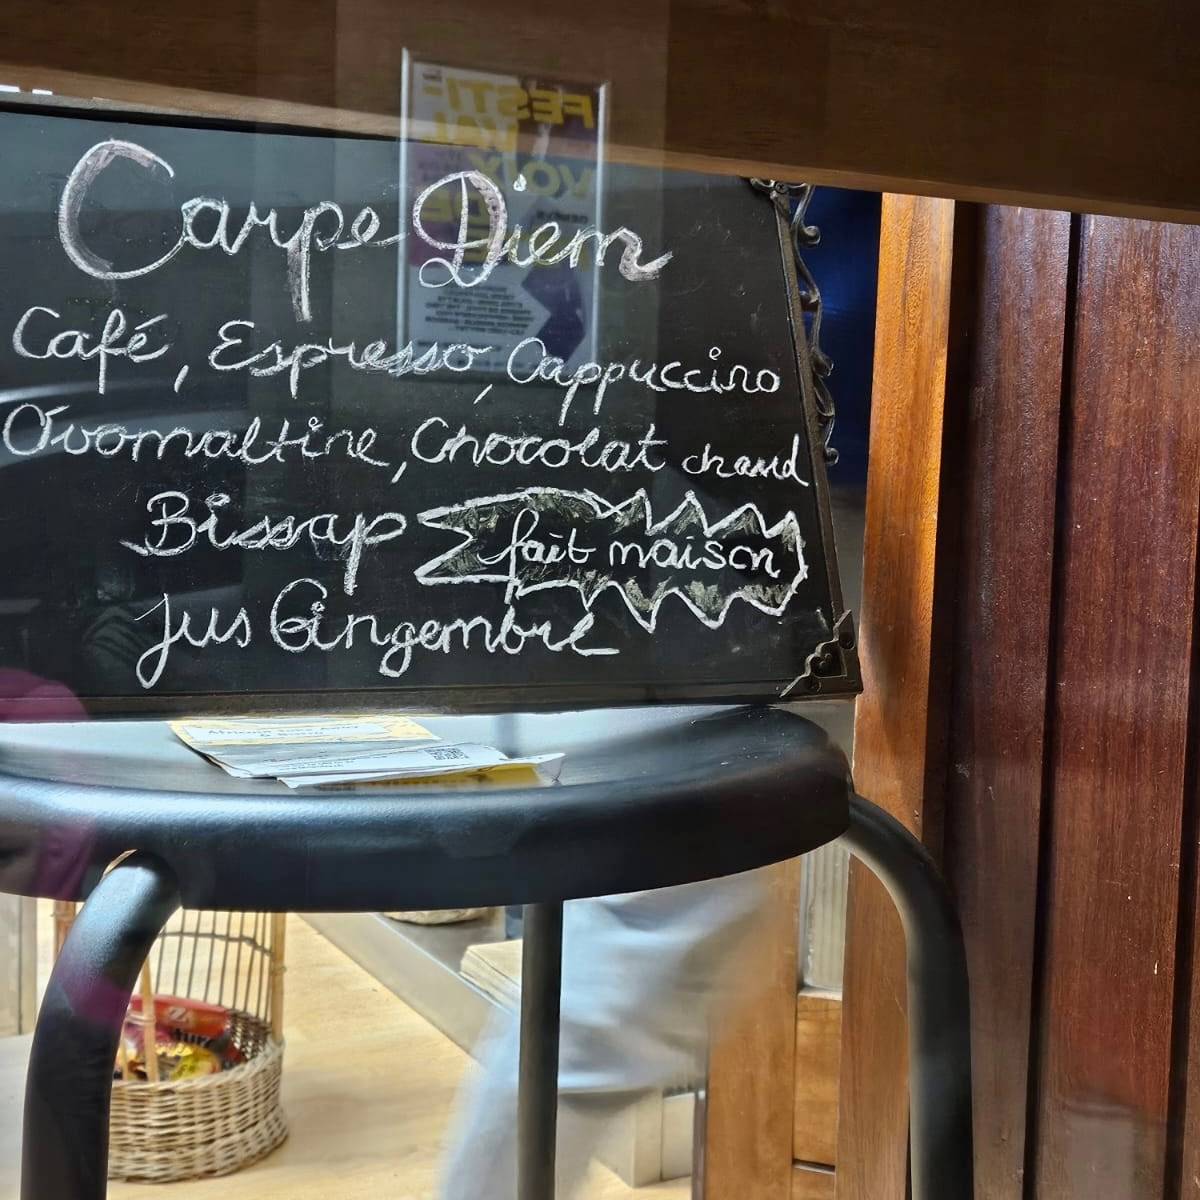 FESTI-
VAL
VOIX
DE
Carpe Diem
Café, Espresso, Cappuccino
Ovomaltine, Chocolat chaud
Bissap fait maison
Jus Gingembre